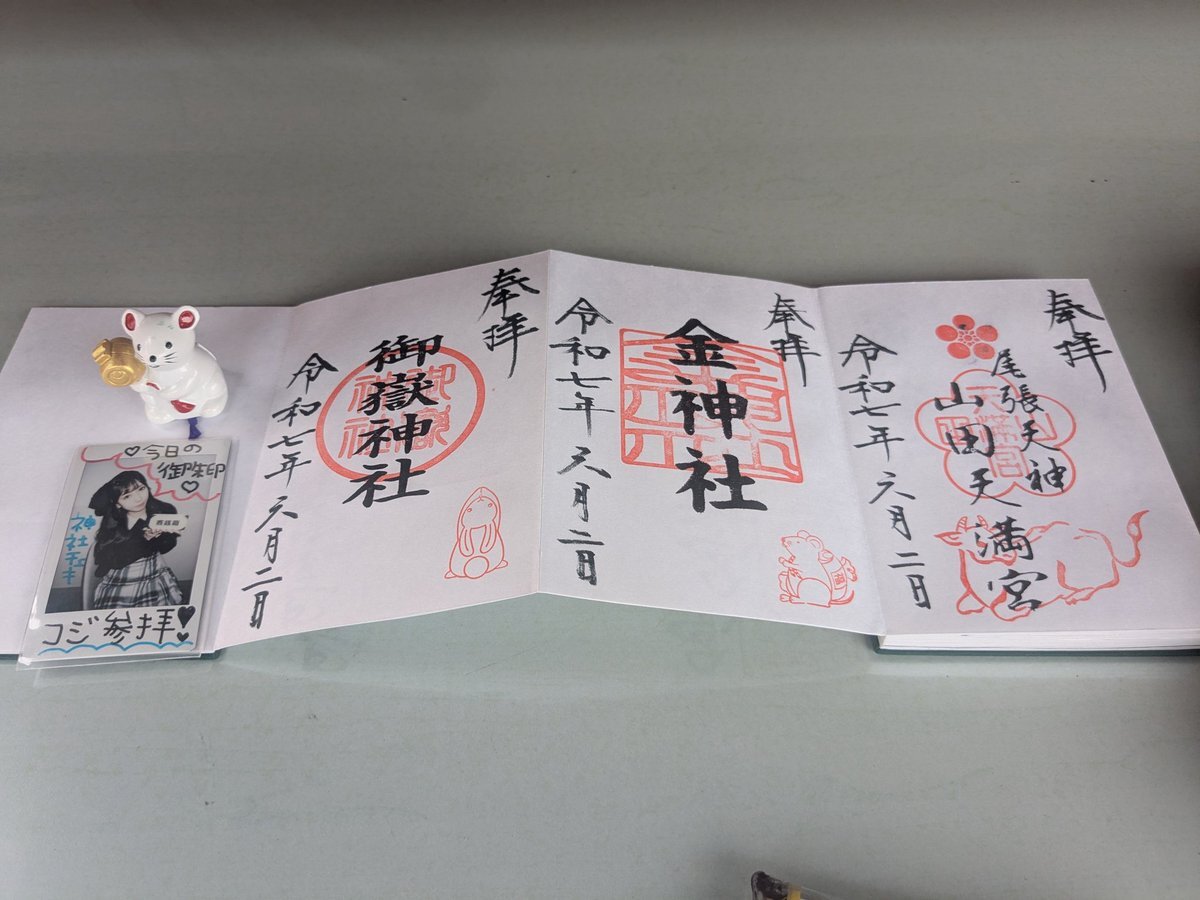 奉拝
尾張天神
山田天満宮
令和七年六月二日
奉拝
金神社
令和七年六月二日
奉拝
御嶽神社
令和七年六月二日
♡今日の
御朱印
♡
神社私キ
コジ参拝!